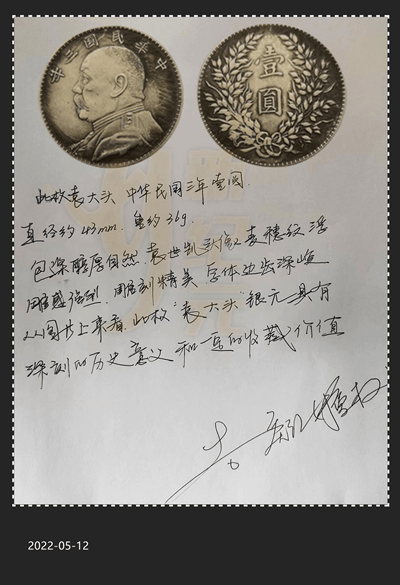 中華民國三年
壹圓
此枚袁大头 中华民国三年壹圆.
直径约43mm. 重约36g.
包浆醇厚自然 袁世凯头像 嘉穗纹浮
雕感强烈. 雕刻精美 字体边齿深峻
从图片上来看. 此枚"袁大头"银元具有
深刻的历史意义 和一定的收藏价值
2022-05-12